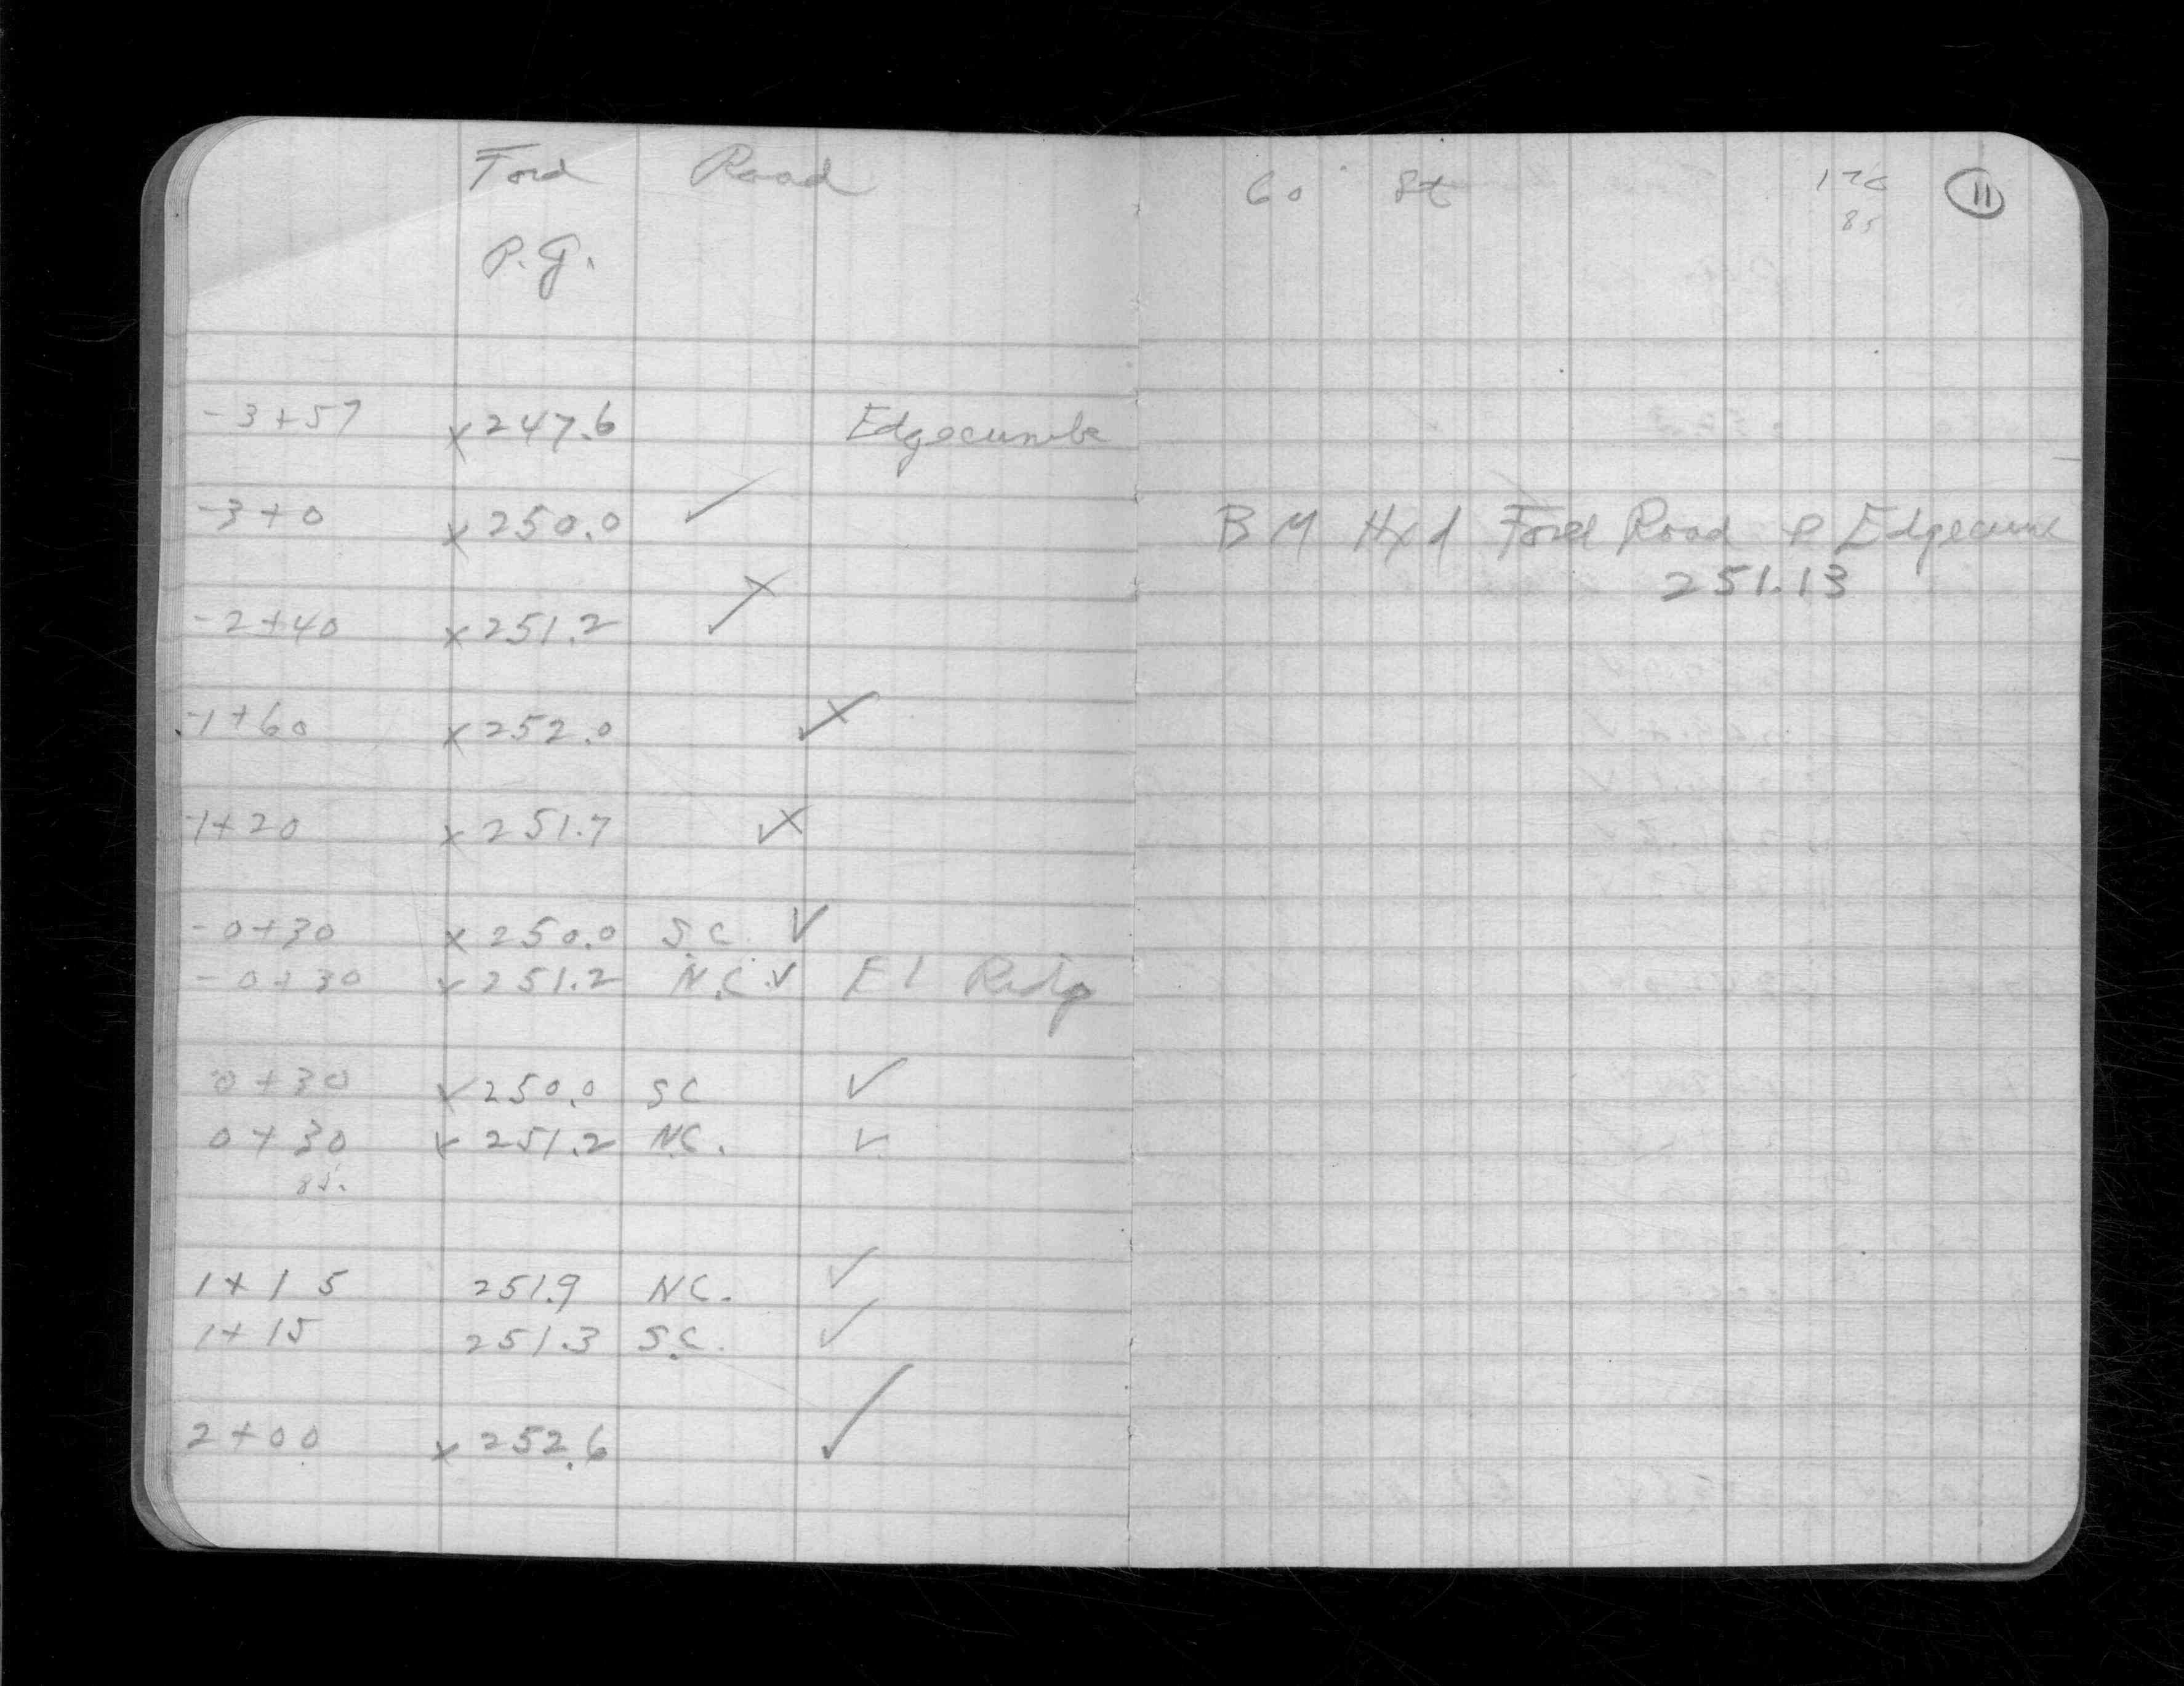 Ford Road
P.G.
-3+57 x 247.6 Edgecumbe
-3+0 x 250.0 ✓
-2+40 x 251.2 ✓
-1+60 x 252.0 ✓
-1+20 x 251.7 ✓
-0+30 x 250.0 S.C. ✓
-0+30 x 251.2 N.C. ✓ El Ridg
0+30 x 250.0 SC ✓
0+30 x 251.2 N.C. ✓
85.
1+15 251.9 N.C. ✓
1+15 251.3 S.C. ✓
2+00 x 252.6 ✓
60' St
11
85
BM Hyd Ford Road & Edgecumb
251.13